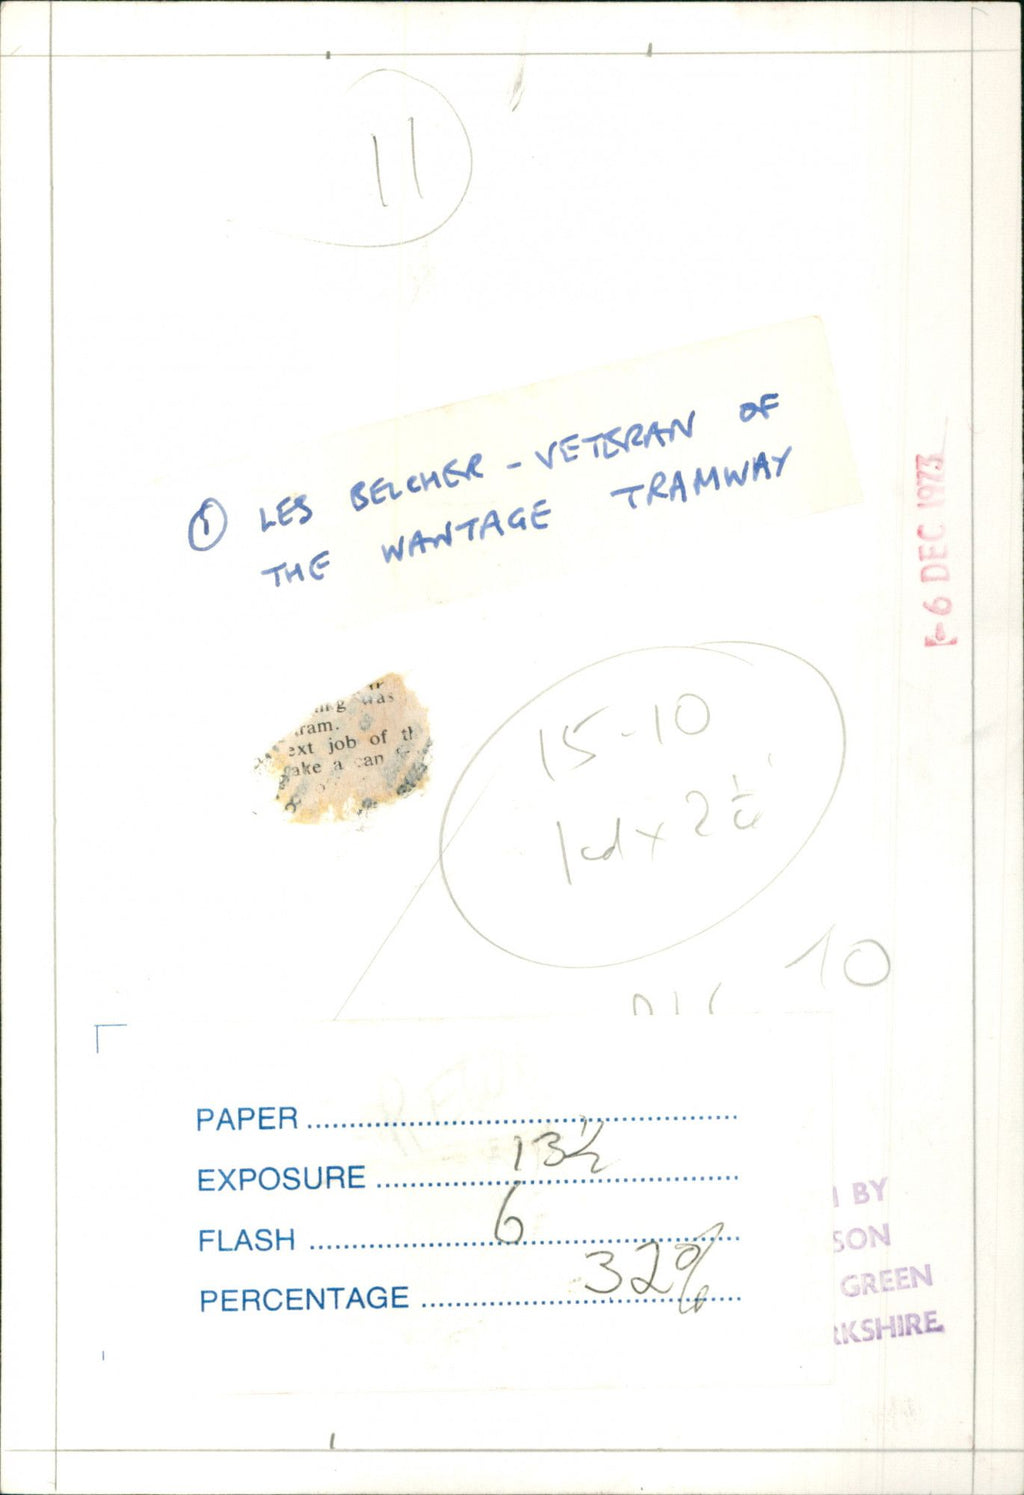 11
① LES BELCHER - VETERAN OF
THE WANTAGE TRAMWAY
-6 DEC 1973
was
ram.
ext job of th
ake a
15-10
10
PAPER
EXPOSURE 13½
FLASH 6
PERCENTAGE 32%
BY
SON
GREEN
RKSHIRE.